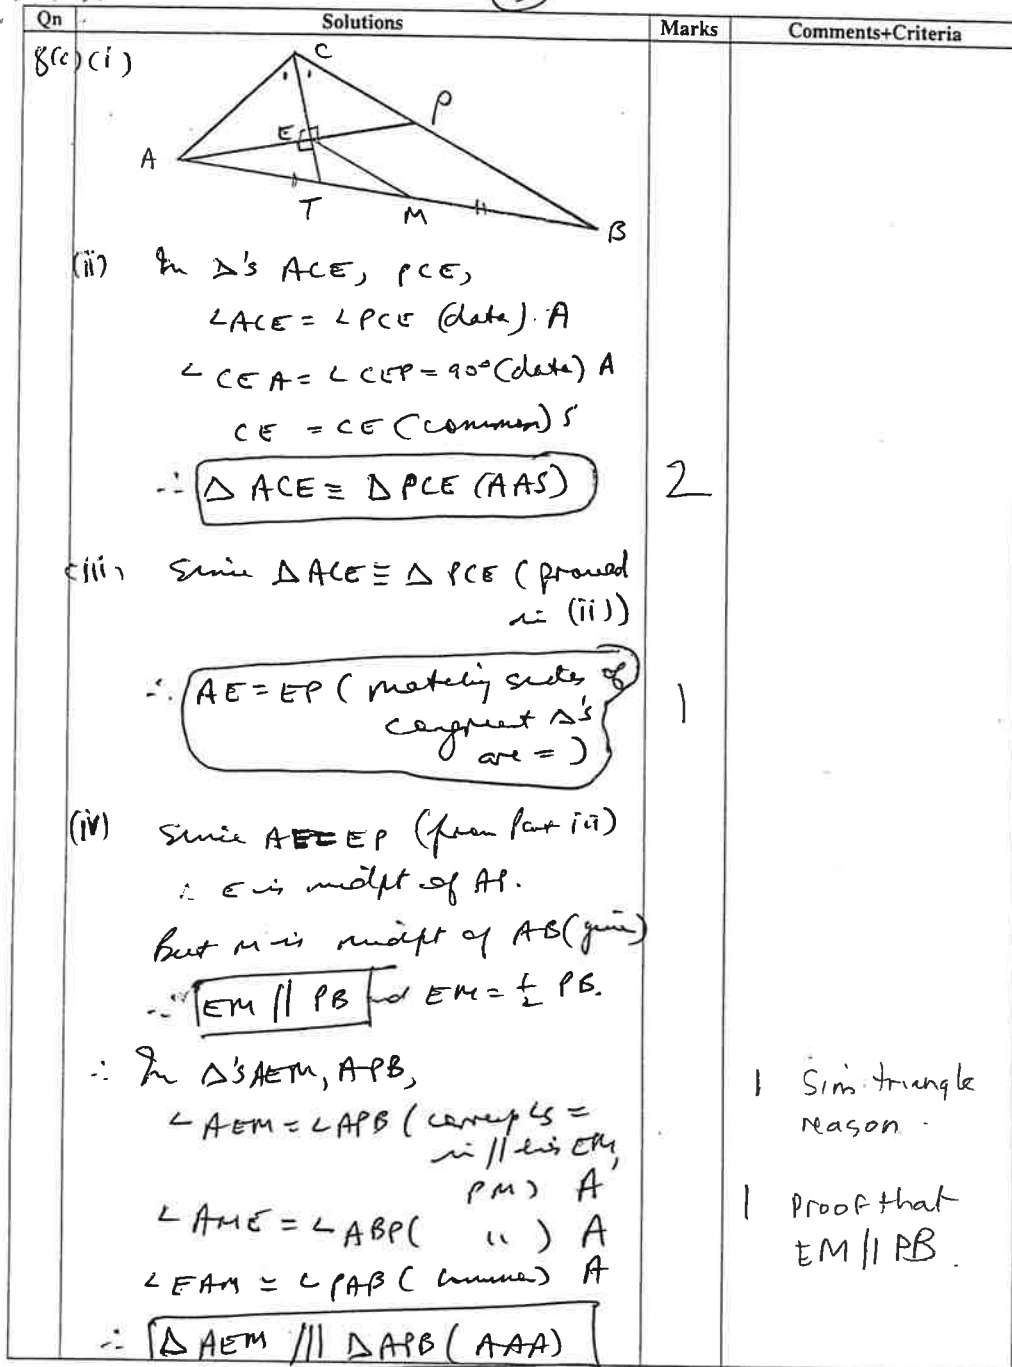 Qn Solutions Marks Comments+Criteria
8(c)(i)
C
P
E
A
T
M
B
(ii) In Δ's ACE, PCE,
∠ACE = ∠PCE (data). A
∠CEA = ∠CEP = 90° (data) A
CE = CE (common) S
∴ Δ ACE ≡ Δ PCE (AAS) 2
(iii) Since ΔACE ≡ Δ PCE (proved
in (ii))
∴ AE = EP (matching sides of
congruent Δ's
are =) 1
(iv) Since AE = EP (from part iii)
∴ E is midpt of AP.
But M is midpt of AB (given)
∴ EM // PB and EM = ½ PB.
∴ In Δ's AEM, APB,
1 Sim. triangle
reason.
∠AEM = ∠APB (corresp ∠s =
in // lines EM,
PM) A
1 Proof that
EM // PB.
∠AME = ∠ABP ( " ) A
∠EAM = ∠PAB (common) A
∴ Δ AEM /// Δ APB (AAA)